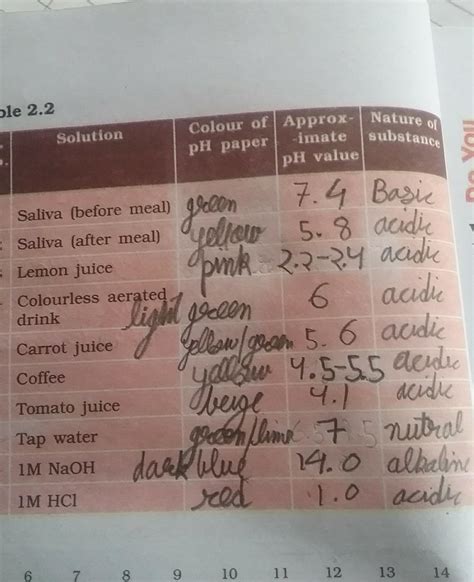 ble 2.2
Solution
Colour of pH paper
Approx- -imate pH value
Nature of substance
Saliva (before meal) green 7.4 Basic
Saliva (after meal) yellow 5.8 acidic
Lemon juice pink 2.2-2.4 acidic
Colourless aerated drink light green 6 acidic
Carrot juice yellow/green 5.6 acidic
Coffee yellow 4.5-5.5 acidic
Tomato juice beige 4.1 acidic
Tap water green/lime 7 nutral
1M NaOH dark blue 14.0 alkaline
1M HCl red 1.0 acidic
6 7 8 9 10 11 12 13 14
Do You